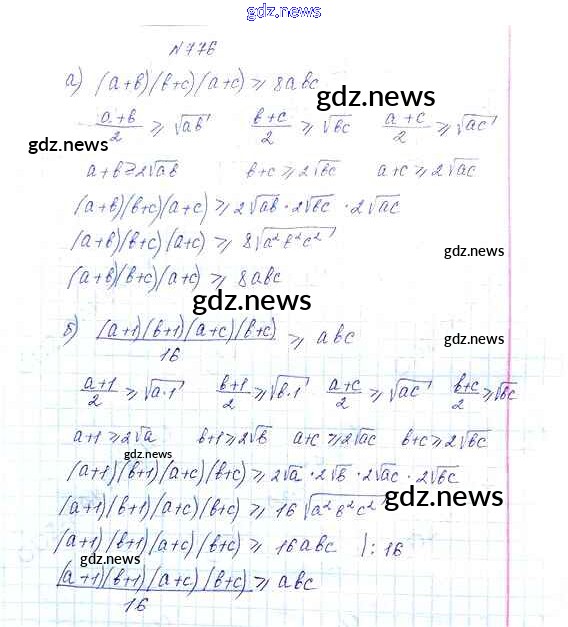 gdz.news
N 776
а) (a+b)(b+c)(a+c) ≥ 8abc
gdz.news
a+b/2 ≥ √ab b+c/2 ≥ √bc a+c/2 ≥ √ac
gdz.news
a+b≥2√ab b+c ≥ 2√bc a+c ≥ 2√ac
(a+b)(b+c)(a+c) ≥ 2√ab · 2√bc · 2√ac
(a+b)(b+c)(a+c) ≥ 8√a²b²c²
gdz.news
(a+b)(b+c)(a+c) ≥ 8abc
gdz.news
б) (a+1)(b+1)(a+c)(b+c)/16 ≥ abc
gdz.news
a+1/2 ≥ √a·1 b+1/2 ≥ √b·1 a+c/2 ≥ √ac b+c/2 ≥ √bc
a+1 ≥ 2√a b+1 ≥ 2√b a+c ≥ 2√ac b+c ≥ 2√bc
gdz.news
(a+1)(b+1)(a+c)(b+c) ≥ 2√a · 2√b · 2√ac · 2√bc
(a+1)(b+1)(a+c)(b+c) ≥ 16√a²b²c²
gdz.news
(a+1)(b+1)(a+c)(b+c) ≥ 16abc |: 16
gdz.news
(a+1)(b+1)(a+c)(b+c)/16 ≥ abc